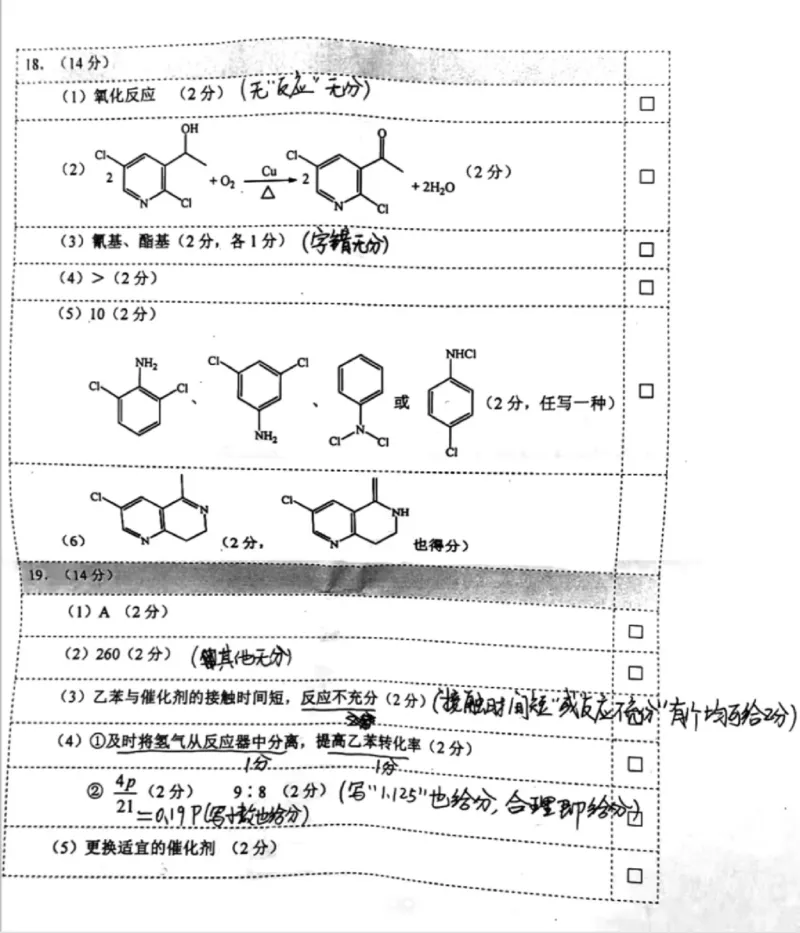 18. （14分）
（1）氧化反应 （2分）（无"反应"无分）
（2） 2 Cl OH N Cl + O₂ Cu △ 2 Cl O N Cl + 2H₂O （2分）
（3）氰基、酯基（2分，各1分）（字错无分）
（4）＞（2分）
（5）10（2分）
Cl NH₂ Cl 、 Cl Cl NH₂ 、 N Cl Cl 或 NHCl Cl （2分，任写一种）
（6） Cl N N （2分， Cl NH N 也得分）
19. （14分）
（1）A （2分）
（2）260（2分）（其他无分）
（3）乙苯与催化剂的接触时间短，反应不充分（2分）（"接触时间短"或"反应不充分"有1个均可给2分）
（4）①及时将氢气从反应器中分离，提高乙苯转化率（2分）
1分 1分
② 4p/21 （2分） 9：8 （2分）（写"1.125"也给分，合理即给分）
=0.19P（写小数也给分）
（5）更换适宜的催化剂 （2分）